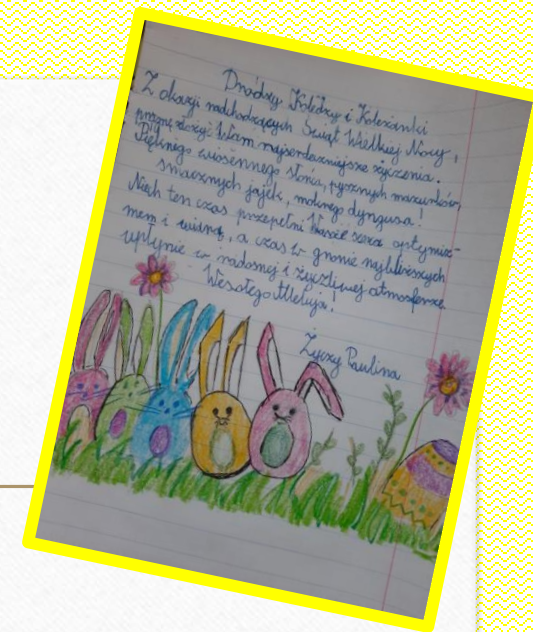 Drodzy Koledzy i Koleżanki
Z okazji nadchodzących Świąt Wielkiej Nocy,
pragnę złożyć Wam najserdeczniejsze życzenia.
Pięknego wiosennego słońca, pysznych mazurków,
smacznych jajek, mokrego dyngusa!
Niech ten czas przepełni Wasze serca optymiz-
mem i wiarą, a czas w gronie najbliższych
upłynie w radosnej i życzliwej atmosferze
Wesołego Alleluja!
Życzy Paulina